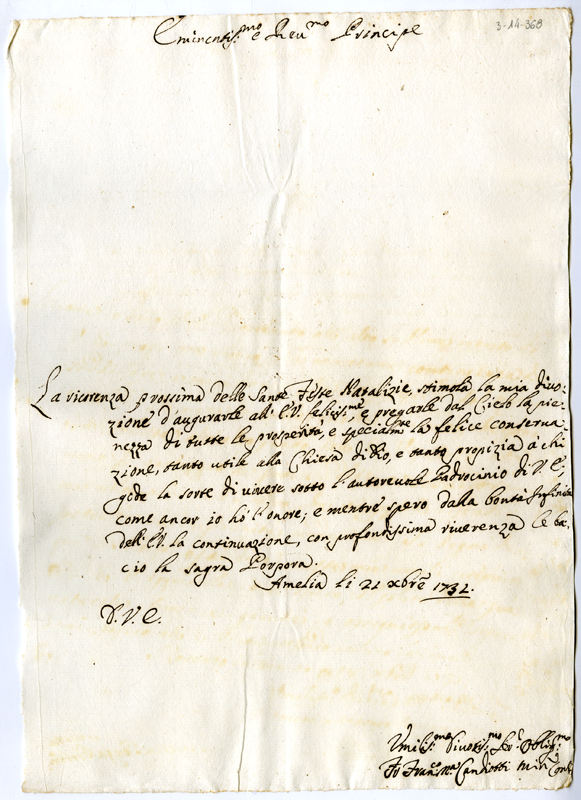 3-14-368
Eminentis.mo e Reu.mo Principe
La ricorenza prossima delle Sante Feste Natalizie, stimola la mia diuo:
zione d'augurarle all' E.V. felicis.me, e pregarle dal Cielo la pie:
nezza di tutte le prosperità, e specialm.te la felice conserua:
zione, tanto utile alla Chiesa di Dio, e tanto propizia à chi
gode la sorte di uiuere sotto l'autoreuole Padrocinio di V. E.
come ancor io hò l'onore; e mentre spero dalla bontà Infinita
dell' E.V. la continuazione, con profondissima riuerenza le ba:
cio la sagra Porpora.
Amelia li 21 xbre 1732.
D. V. E.
Umilis.mo Diuotis.mo Ser.e Obblig.mo
Fr Fran.co Candiotti Min.